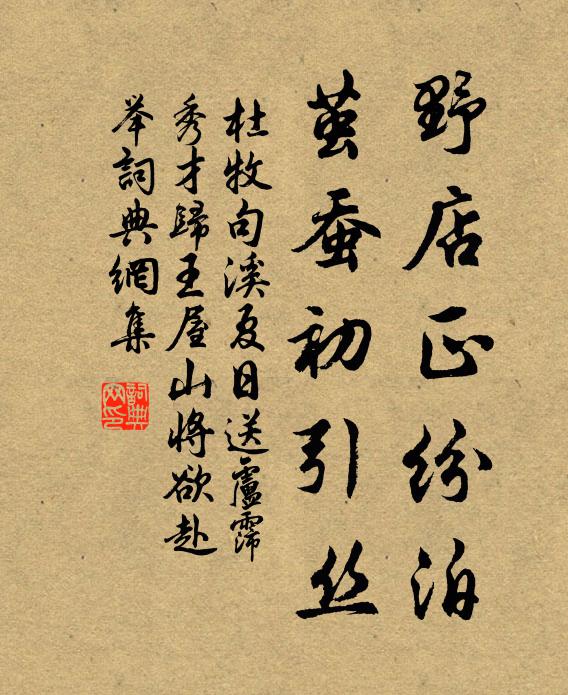 野店正纷泊
茧蚕初引丝
杜牧句溪夏日送盧霈
秀才歸王屋山将欲赴
举詞典網集
詞典网印